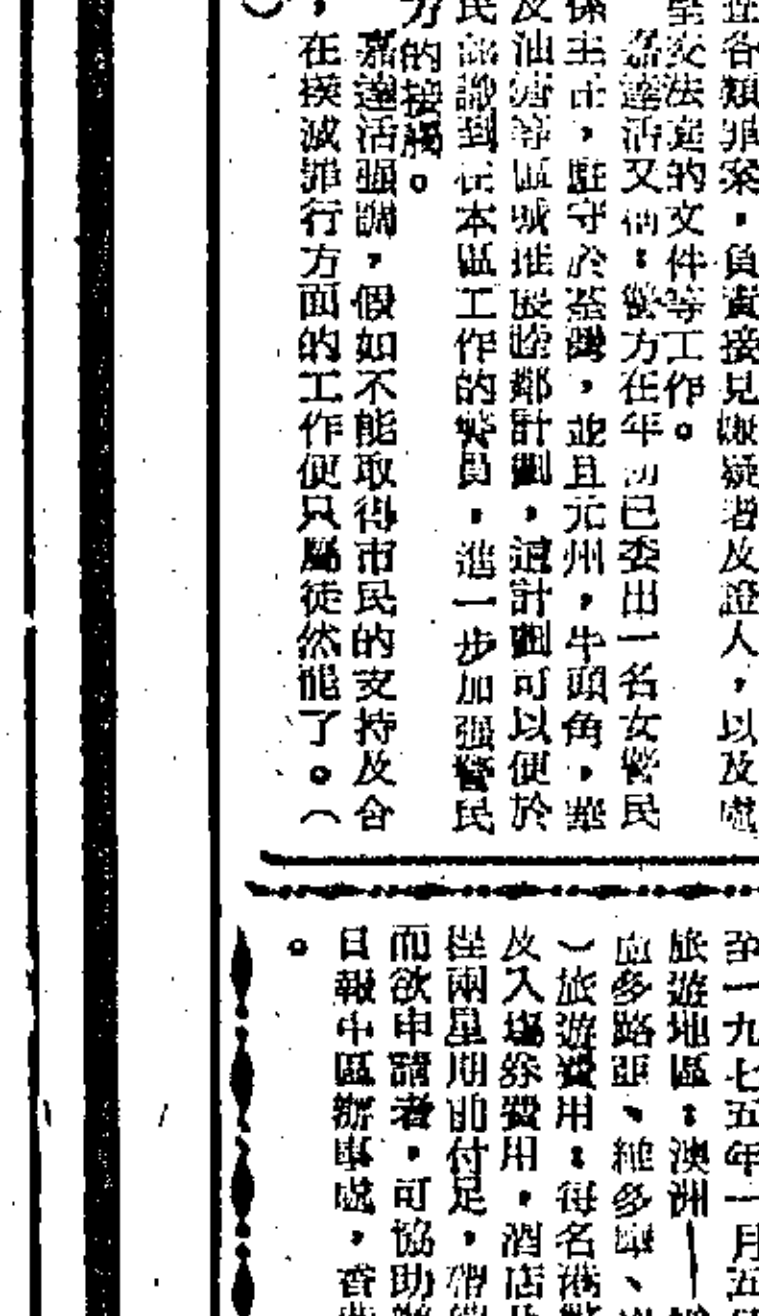 並各類罪案，負責接見嫌疑者及證人，以及處
交法庭的文件等工作。
嘉達活又稱：警方在年初已委出一名女警民
係主任，駐守於荃灣，並且元州，牛頭角，
及油塘等區域推展睦鄰計劃，這計劃可以便於
民認識到在本區工作的警員，進一步加强警民
力的接觸。
嘉達活强調，假如不能取得市民的支持及合
，在撲滅罪行方面的工作便只屬徒然罷了。（
）
一九七五年一月五
旅遊地區：澳洲—
多路亞、維多
）旅遊費用：得名
及入塲券費用，酒店
兩星期前付足，
而欲申請者，可協助
日報中區辦事處，香
。